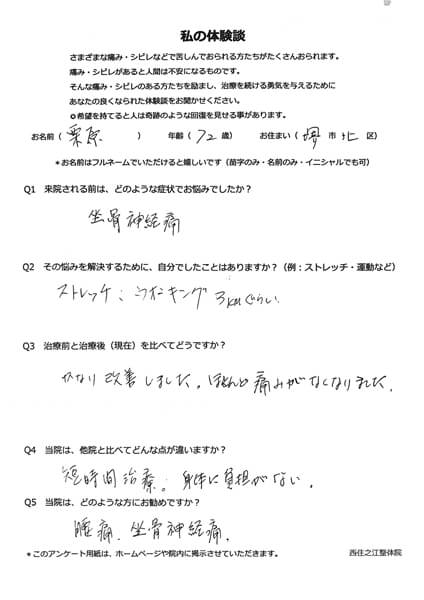 私の体験談
さまざまな痛み・シビレなどで苦しんでおられる方たちがたくさんおられます。
痛み・シビレがあると人間は不安になるものです。
そんな痛み・シビレのある方たちを励まし、治療を続ける勇気を与えるために
あなたの良くなられた体験談をお聞かせください。
✪希望を持てると人は奇跡のような回復を見せる事があります。
お名前(栗原)年齢(72歳)お住まい(堺市北区)
*お名前はフルネームでいただけると嬉しいです(苗字のみ・名前のみ・イニシャルでも可)
Q1 来院される前は、どのような症状でお悩みでしたか?
坐骨神経痛
Q2 その悩みを解決するために、自分でしたことはありますか?(例:ストレッチ・運動など)
ストレッチ、ウオーキング 3kmぐらい
Q3 治療前と治療後(現在)を比べてどうですか?
かなり改善しました。ほとんど痛みがなくなりました。
Q4 当院は、他院と比べてどんな点が違いますか?
短時間治療。身体に負担がない。
Q5 当院は、どのような方にお勧めですか?
腰痛、坐骨神経痛。
*このアンケート用紙は、ホームページや院内に掲示させていただきます。
西住之江整体院